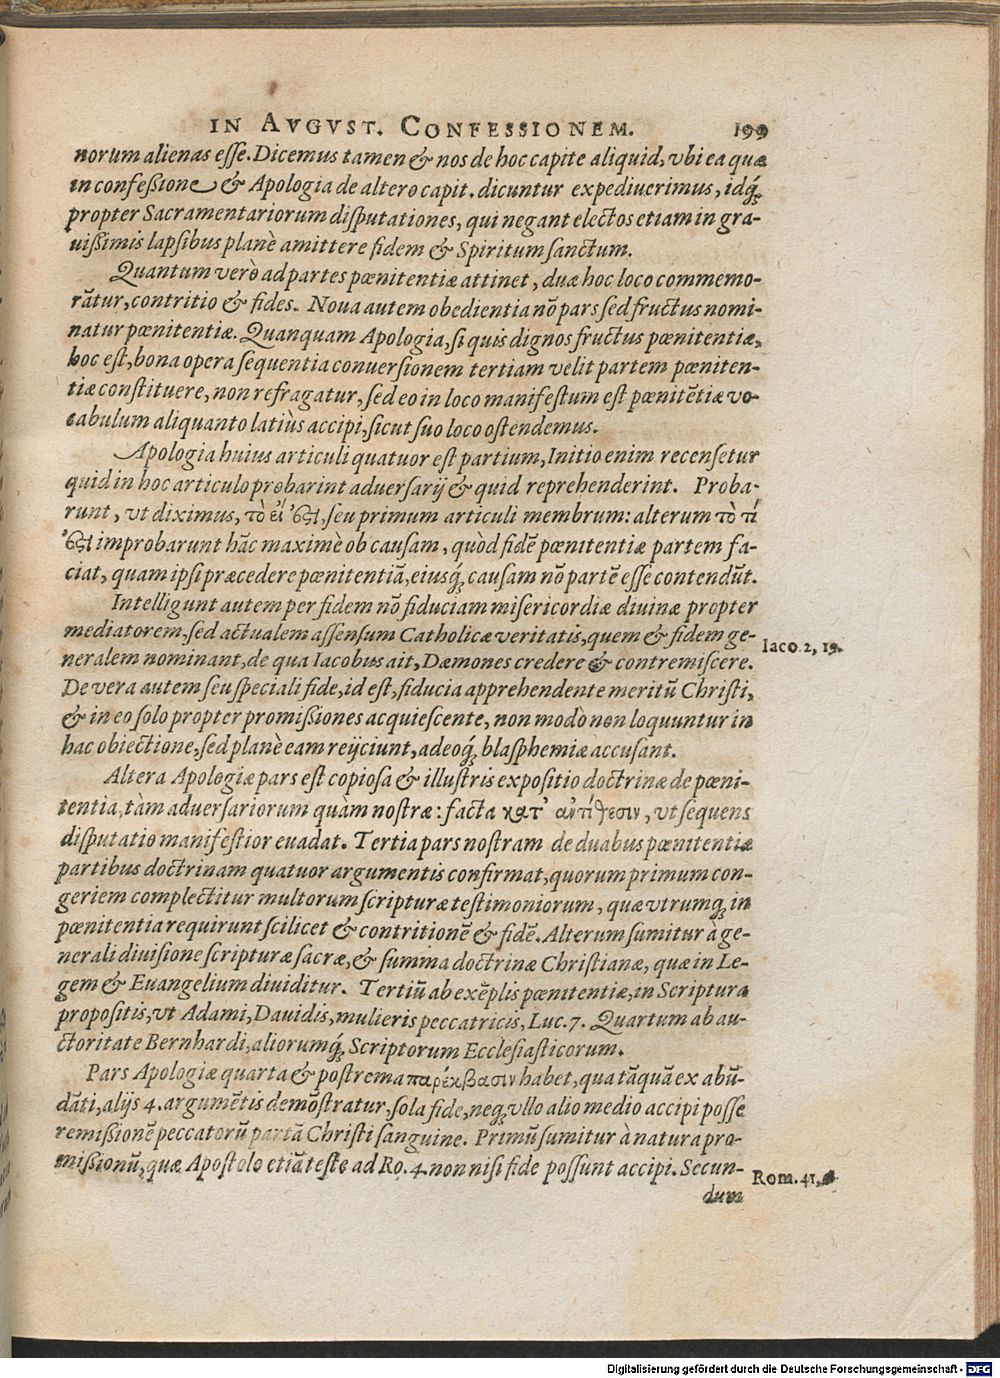 IN AVGVST. CONFESSIONEM. 199
norum alienas esse. Dicemus tamen & nos de hoc capite aliquid, vbi ea quæ
in confeßione & Apologia de altero capit. dicuntur expediuerimus, idq́;
propter Sacramentariorum disputationes, qui negant electos etiam in gra-
uißimis lapsibus planè amittere fidem & Spiritum sanctum.
Quantum verò ad partes pœnitentiæ attinet, duæ hoc loco commemo-
rātur, contritio & fides. Noua autem obedientia nō pars sed fructus nomi-
natur pœnitentiæ. Quanquam Apologia, si quis dignos fructus pœnitentiæ,
hoc est, bona opera sequentia conuersionem tertiam velit partem pœniten-
tiæ constituere, non refragatur, sed eo in loco manifestum est pœnitētiæ vo-
cabulum aliquanto latiùs accipi, sicut suo loco ostendemus.
Apologia huius articuli quatuor est partium, Initio enim recensetur
quid in hoc articulo probarint aduersarij & quid reprehenderint. Proba-
runt, vt diximus, τὸ εἰ ἔστι, seu primum articuli membrum: alterum τὸ τί
ἔστι improbarunt hāc maximè ob causam, quòd fidē pœnitentiæ partem fa-
ciat, quam ipsi præcedere pœnitentiā, eiusq́; causam nō partē esse contendūt.
Intelligunt autem per fidem nō fiduciam misericordiæ diuinæ propter
mediatorem, sed actualem assensum Catholicæ veritatis, quem & fidem ge-
neralem nominant, de qua Iacobus ait, Dæmones credere & contremiscere.
Iaco. 2, 19.
De vera autem seu speciali fide, id est, fiducia apprehendente meritū Christi,
& in eo solo propter promißiones acquiescente, non modò non loquuntur in
hac obiectione, sed planè eam reijciunt, adeoq́; blasphemiæ accusant.
Altera Apologiæ pars est copiosa & illustris expositio doctrinæ de pœni-
tentia, tàm aduersariorum quàm nostræ: facta κατ' ἀντίθεσιν, vt sequens
disputatio manifestior euadat. Tertia pars nostram de duabus pœnitentiæ
partibus doctrinam quatuor argumentis confirmat, quorum primum con-
geriem complectitur multorum scripturæ testimoniorum, quæ vtrumq; in
pœnitentia requirunt scilicet & contritionē & fidē. Alterum sumitur à ge-
nerali diuisione scripturæ sacræ, & summa doctrinæ Christianæ, quæ in Le-
gem & Euangelium diuiditur. Tertiū ab exēplis pœnitentiæ, in Scriptura
propositis, vt Adami, Dauidis, mulieris peccatricis, Luc. 7. Quartum ab au-
ctoritate Bernhardi, aliorumq́; Scriptorum Ecclesiasticorum.
Pars Apologiæ quarta & postrema παρέκβασιν habet, qua tāquā ex abū-
dāti, alijs 4. argumētis demōstratur, sola fide, neq; vllo alio medio accipi posse
remißionē peccatorū partā Christi sanguine. Primū sumitur à natura pro-
mißionū, quæ Apostolo etiā teste ad Ro. 4. non nisi fide possunt accipi. Secun-
Rom. 41,
dum
Digitalisierung gefördert durch die Deutsche Forschungsgemeinschaft - DFG